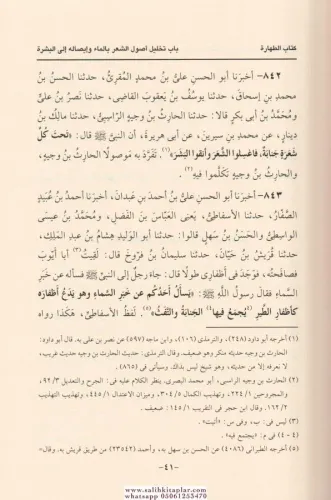 كتاب الطهارة
باب تخليل أصول الشعر بالماء وإيصاله إلى البشرة
٨٤٢- أخبرنا أبو الحسن عليُّ بنُ محمدٍ المقرِئُ، حدثنا الحسنُ بنُ
محمدِ بنِ إسحاقَ، حدثنا يوسُفُ بنُ يعقوبَ القاضِى، حدثنا نَصرُ بنُ علىٍّ
ومُحَمَّدُ بنُ أبى بكرٍ قالا: حدثنا الحارِثُ بنُ وجيهٍ الرّاسِبِىُّ، حدثنا مالكُ بنُ
دينارٍ، عن محمدِ بنِ سيرينَ، عن أبى هريرةَ، أن النبىَّ ﷺ قال: «تَحتَ كُلِّ
شَعَرَةٍ جَنابَةٌ، فاغسِلوا الشَّعَرَ وأنقوا البَشَرَةَ»(١). تَفَرَّدَ به مَوصولًا الحارثُ بنُ وجيهٍ،
والحارِثُ بنُ وجيهٍ تَكَلَّموا فيهِ(٢).
٨٤٣- أخبرَنا أبو الحسنِ علىُّ بنُ أحمدَ بنِ عَبدانَ، أخبرَنا أحمدُ بنُ عُبَيدٍ
الصَّفّارُ، حدثنا الأسفاطِىُّ، يعنى العباسَ بنَ الفَضلِ، ومُحَمَّدُ بنُ عيسَى
الواسِطِىُّ والحَسَنُ بنُ سَهلٍ قالوا: حدثنا أبو الوَليدِ هِشامُ بنُ عبدِ المَلِكِ،
حدثنا قُرَيشُ بنُ حَيّانَ، حدثنا سليمانُ بنُ فرّوخَ قال: لَقِيتُ(٣) أبا أيّوبَ
فصافَحتُه، فوَجَدَ فى أظفارِى طولًا قال: جاءَ رجلٌ إلى النبىِّ ﷺ فسألَه عن خَبَرِ
السَّماءِ فقال رسولُ اللَّهِ ﷺ: «يَسألُ أحَدُكُم عن خَبَرِ السَّماءِ وهو يَدَعُ أظفارَه
كأظفارِ الطَّيرِ (٤)يُجمَعُ فيها(٤) الجَنابَةُ والتَّفَثُ»(٥). لَفظُ الأسفاطِىِّ، هَكَذا رواه
(١) أخرجه أبو داود (٢٤٨)، والترمذى (١٠٦)، وابن ماجه (٥٩٧) عن نصر بن على به. قال أبو داود:
الحارث بن وجيه حديثه منكر وهو ضعيف. وقال الترمذى: حديث الحارث بن وجيه حديث غريب،
لا نعرفه إلا من حديثه، وهو شيخ ليس بذاك. وسيأتى فى (٨٦٥).
(٢) الحارث بن وجيه الراسبى، أبو محمد البصرى. ينظر الكلام عليه فى: الجرح والتعديل ٩٢/٣،
والمجروحين ٢٢٤/١، وتهذيب الكمال ٣٠٤/٥، وميزان الاعتدال ٤٤٥/١، وتهذيب التهذيب
١٦٢/٢. وقال ابن حجر فى التقريب ١٤٥/١: ضعيف.
(٣) ليس فى: ب، وفى س: «أتيت».
(٤ - ٤) فى م: «يجتمع فيه».
(٥) أخرجه الطبرانى (٤٠٨٦) عن الحسن بن سهل به، وأحمد (٢٣٥٤٢) من طريق قريش به. وقال=
-٤١-
www.salihkitaplar.com
whatsapp 05061253470